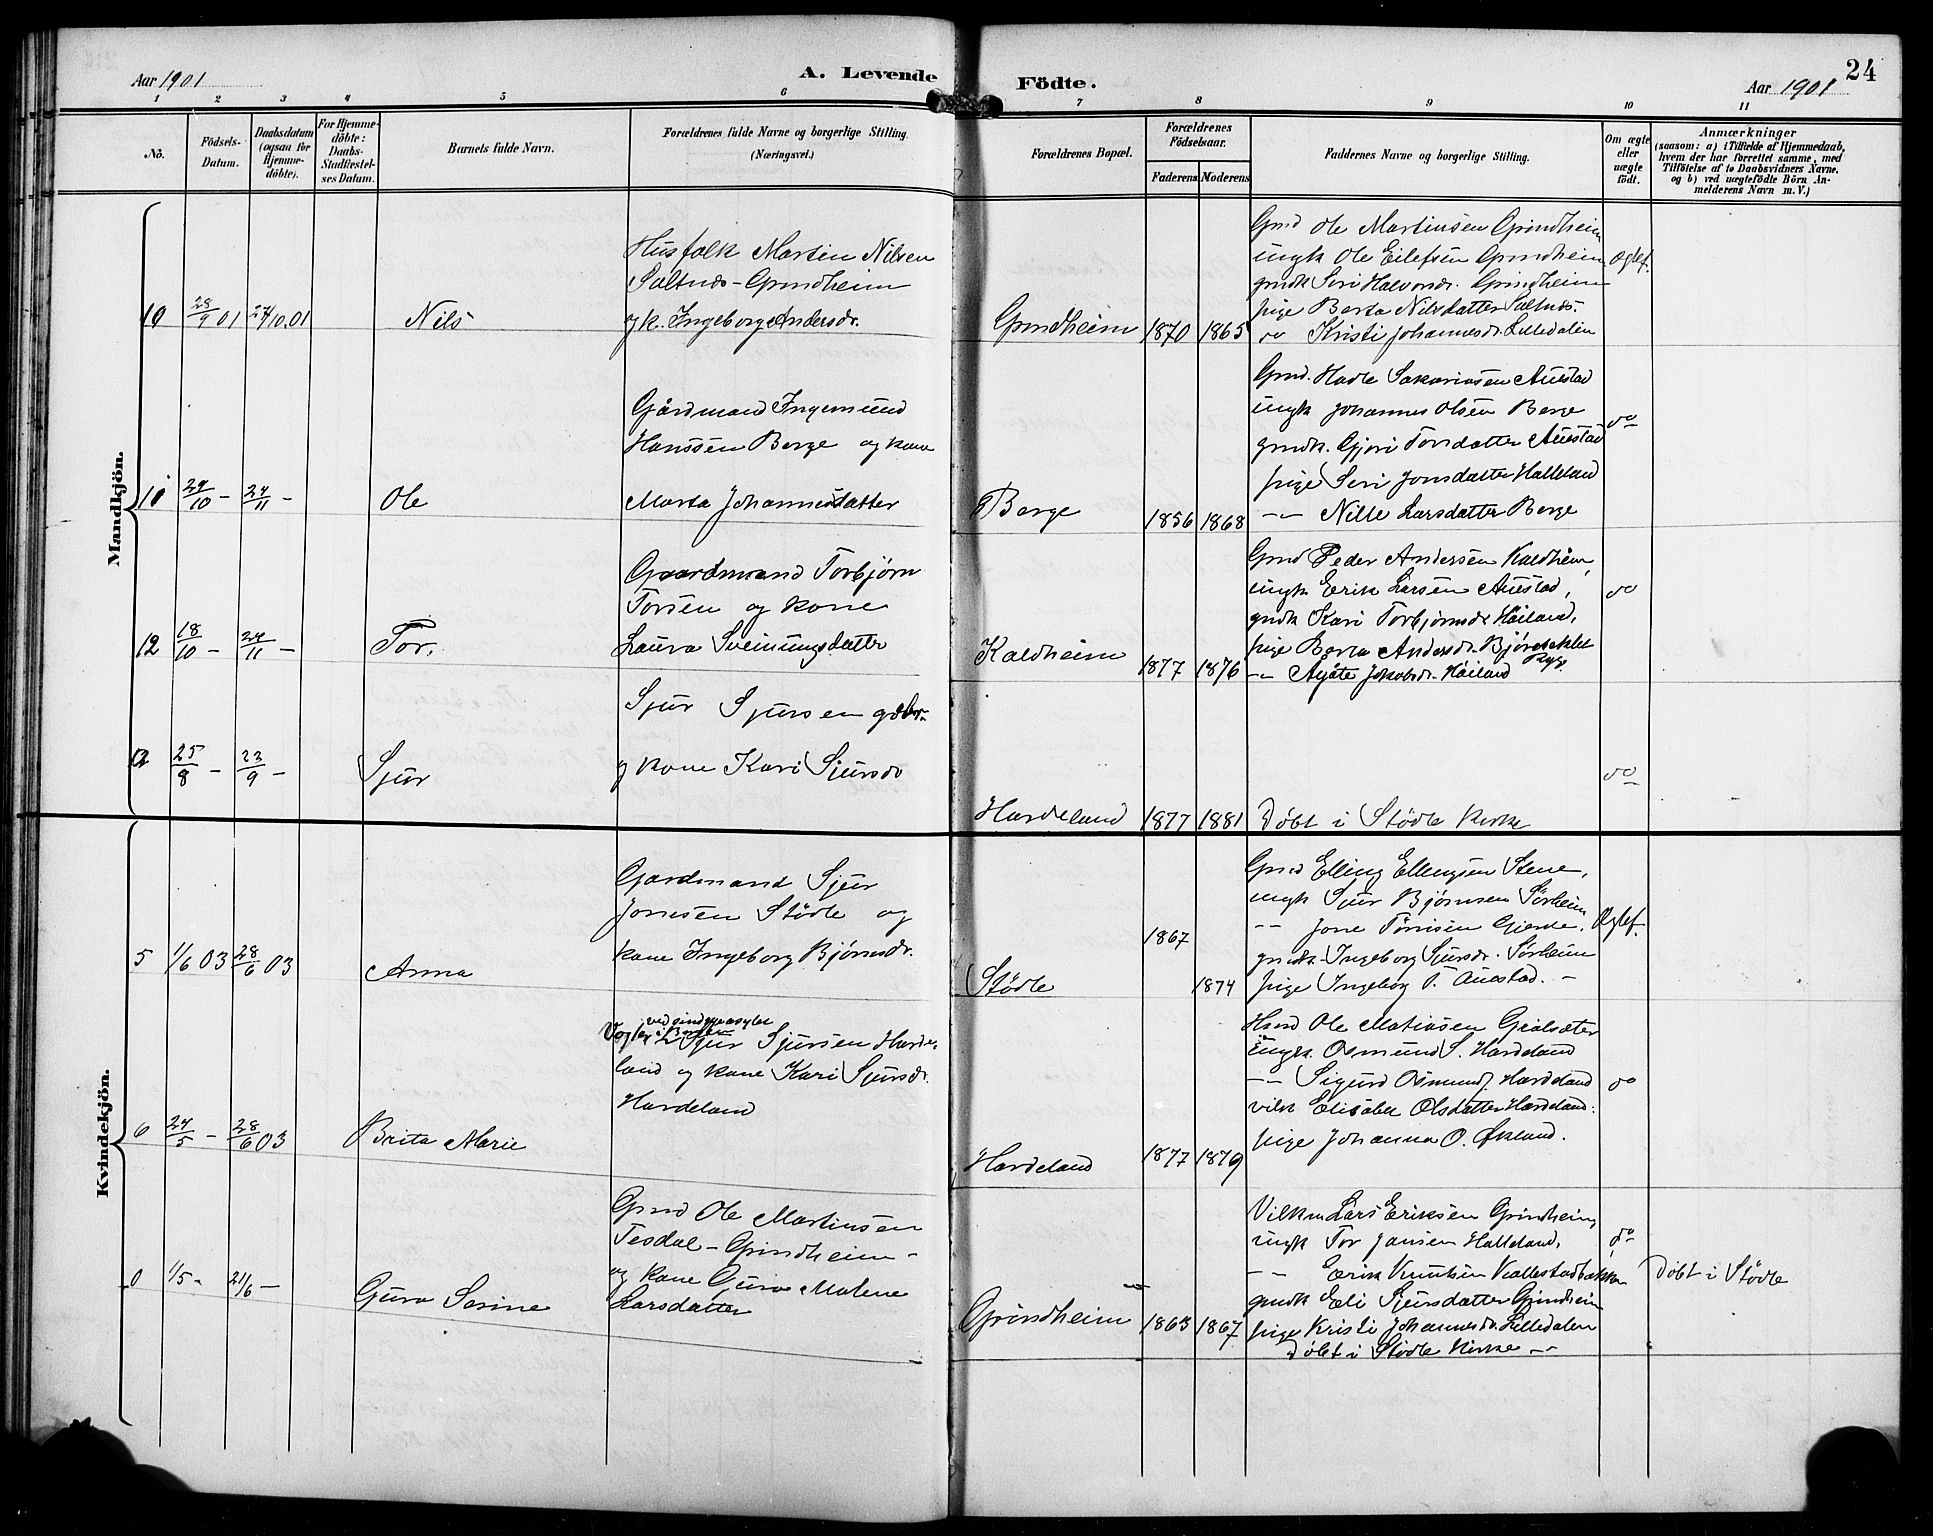 Aar 1901
A. Levende
Födte.
Aar 1901
24
1 2 3 4 5 6 7 8 9 10 11
No.
Födsels-
Datum.
Daabsdatum
(ogsaa for
Hjemme-
döbte).
For Hjemme-
döbte:
Daabs-
Stadfæstel-
ses Datum.
Barnets fulde Navn.
Forældrenes fulde Navne og borgerlige Stilling.
(Næringsvei.)
Forældrenes Bopæl.
Forældrenes
Födselsaar.
Faderens
Moderens
Faddernes Navne og borgerlige Stilling.
Om ægte
eller
uægte
födt.
Anmærkninger
(saasom: a) i Tilfælde af Hjemmedaab,
hvem der har forrettet samme, med
Tilföielse af to Daabsvidners Navne,
og b) ved uægtefödte Börn An-
melderens Navn m. V.)
Mandkjön.
10
28/9 01
27/10.01
Nils
Husfolk Martin Nilsen
Saltnes-Grindheim
og k. Ingeborg Andersdr.
Grindheim
1870
1865
Gmd Ole Martinsen Grindheim
ungk Ole Eilefsen Grindheim
gmdk Siri Halvorsdr. Grindheim
pige Berta Nilsdatter Saltnes.
do Kristi Johannesdr. Lilledalen
Ogtef.
11
29/10 -
24/11 -
Ole
Gårdmand Ingemund
Hanssen Berge og kone
Marta Johannesdatter
Berge
1856
1868
Gmd. Hadle Sakariasen Auestad
ungk Johannes Olsen Berge
gmdk. Gjøri Torsdatter Auestad
pige Siri Jonsdatter Halleland
-"- Nille Larsdatter Berge
do
12
18/10 -
24/11 -
Tor.
Gaardmand Torbjørn
Torsen og kone
Laura Sveinungsdatter
Kaldheim
1877
1876
Gmd Peder Andersen Kaldheim,
ungk Erik Larsen Auestad,
gmdk Kari Torbjørnsdr Høiland,
pige Berta Andersdr. Bjørdsøklet
-"- Agåte Jakobsdr. Høiland
do
25/8 -
23/9 -
Sjur
Sjur Sjursen gdbr.
og kone Kari Sjursdr
Hardeland
1877
1881
Døbt i Stødle kirke
do
Kvindekjön.
5
1/6 03
28/6 03
Anna
Gardmand Sjur
Jonesen Stødle og
kone Ingeborg Bjørnsdr.
Stødle
1867
1874
Gmd Elling Ellingsen Stene,
ungk Sjur Bjørnsen Sørheim
-"- Jone Tørrisen Gjerde.
gmdk. Ingeborg Sjursdr. Sørheim
pige Ingeborg T. Auestad. -
Ægtef.
6
24/5 -
28/6 03
Brita Marie
ved sindsygeasylet
Vogter i Bergen
Sjur Sjursen Harde-
land og kone Kari Sjursdr.
Hardeland
Hardeland
1877
1879
Ole Matiasen Gralsæter
Ungk. Osmund S. Hardeland
-"- Sigurd Osmunds. Hardeland
vilk Elisabet Olsdatter Hardeland.
pige Johanna O. Økland.
do
0
1/5 -
21/6 -
Guro Serine
Gmd Ole Martinsen
Tesdal-Grindheim-
og kone Guro Malene
Larsdatter
Grindheim
1863
1867
Vilkm Lars Eriksen Grindheim,
ungk Tor Jansen Halleland,
-"- Erik Knutsen Vallestadbakken
gmdk Eli Sjursdatter Grindheim
pige Kristi Johannesdr. Lilledalen
Døbt i Stødle kirke -"-
do
Døbt i Stødle